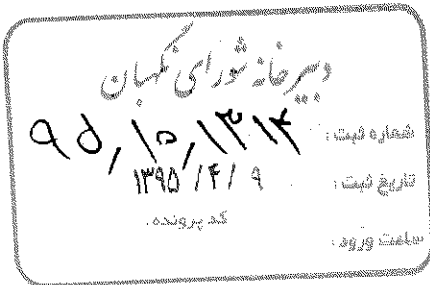 دبیرخانه شورای نگهبان
شماره ثبت: ۹۵/۱۰/۱۳۱۴
تاریخ ثبت: ۱۳۹۵/۴/۹
کد پرونده:
ساعت ورود: